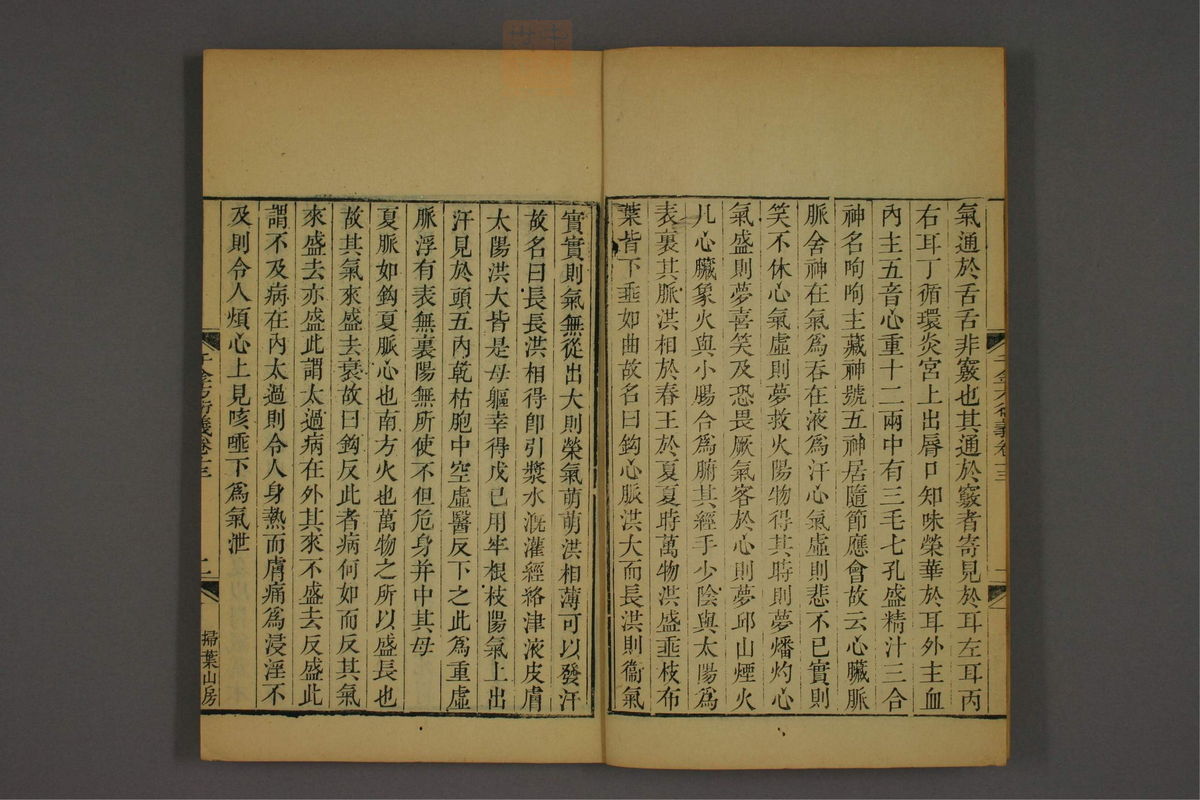 氣通於舌舌非竅也其通於竅者寄見於耳左耳丙
右耳丁循環炎宮上出脣口知味榮華於耳外主血
內主五音心重十二兩中有三毛七孔盛精汁三合
神名呴呴主藏神號五神居隨節應會故云心臟脈
脈舍神在氣爲吞在液爲汗心氣虛則悲不已實則
笑不休心氣虛則夢救火陽物得其時則夢燔灼心
氣盛則夢喜笑及恐畏厥氣客於心則夢邱山煙火
凡心臟象火與小腸合爲腑其經手少陰與太陽爲
表裏其脈洪相於春王於夏夏時萬物洪盛埀枝布
葉皆下埀如曲故名曰鈎心脈洪大而長洪則衞氣
實實則氣無從出大則榮氣萌萌洪相薄可以發汗
故名曰長長洪相得卽引漿水溉灌經絡津液皮膚
太陽洪大皆是母軀幸得戊已用牢根枝陽氣上出
汗見於頭五內乾枯胞中空虛醫反下之此爲重虛
脈浮有表無裏陽無所使不但危身并中其母
夏脈如鈎夏脈心也南方火也萬物之所以盛長也
故其氣來盛去衰故曰鈎反此者病何如而反其氣
來盛去亦盛此謂太過病在外其來不盛去反盛此
謂不及病在內太過則令人身熱而膚痛爲浸淫不
及則令人煩心上見咳唾下爲氣泄
千金方衍義卷十三
二
掃葉山房